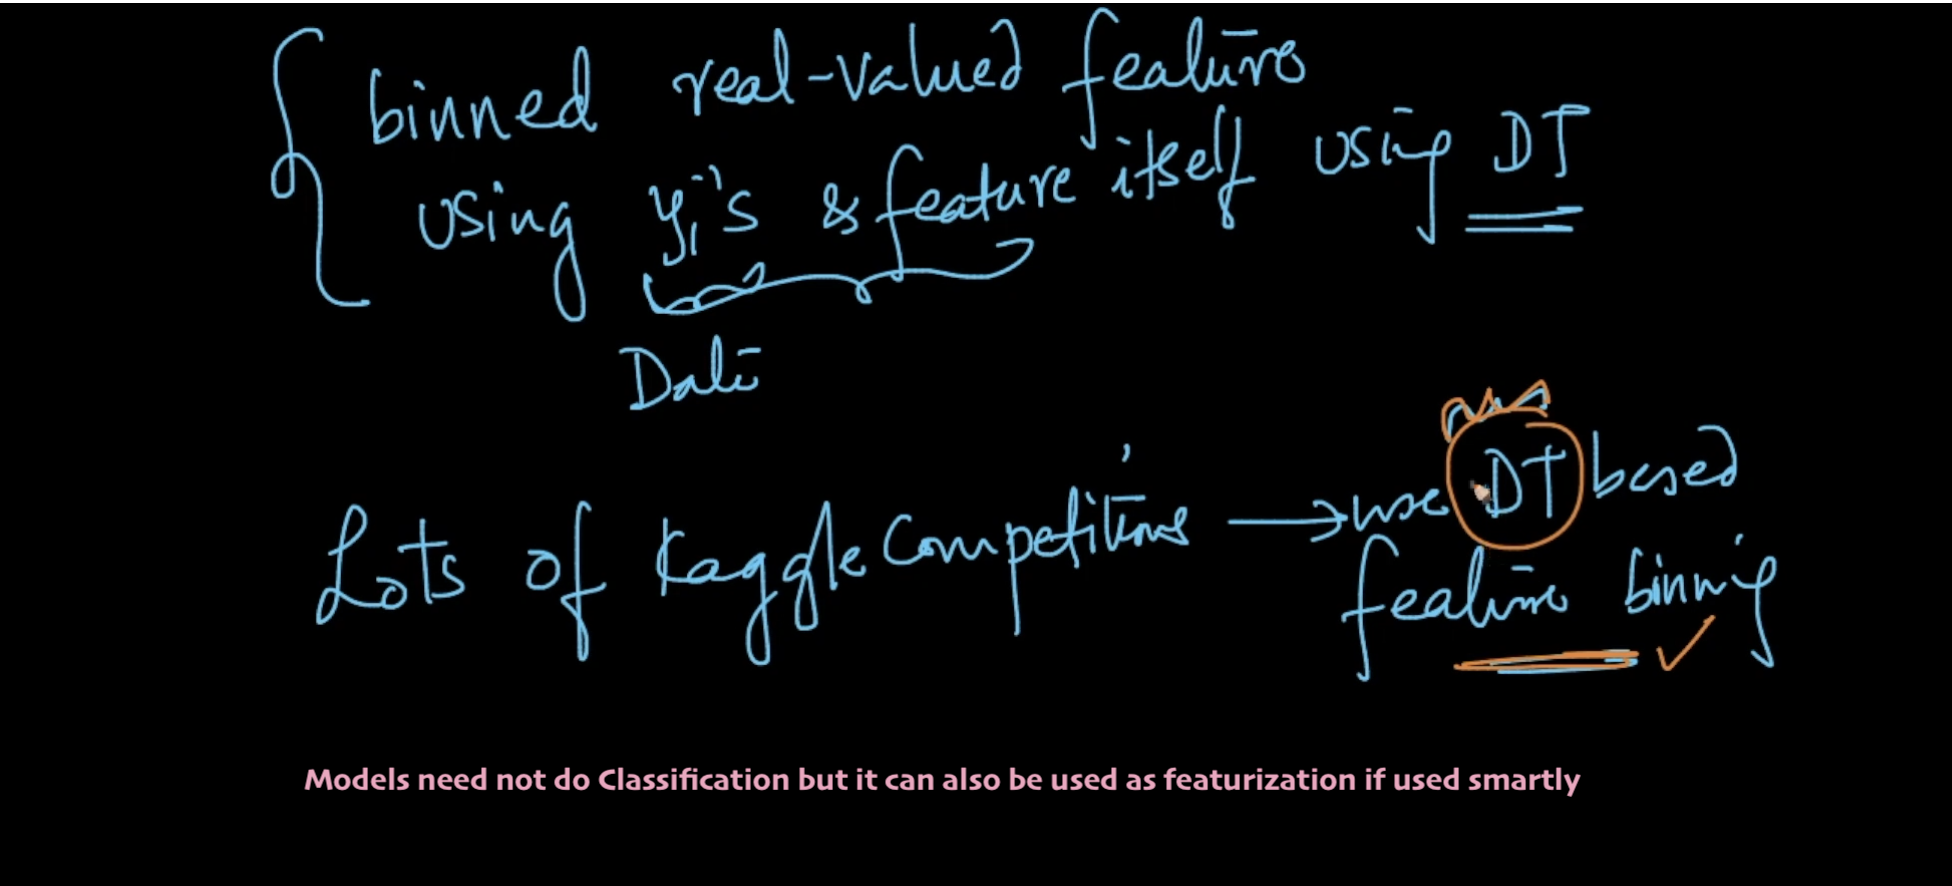 binned real-valued feature
using yi's & feature itself using DT
Data
Lots of Kaggle Competitions → use DT based
feature binning
Models need not do Classification but it can also be used as featurization if used smartly